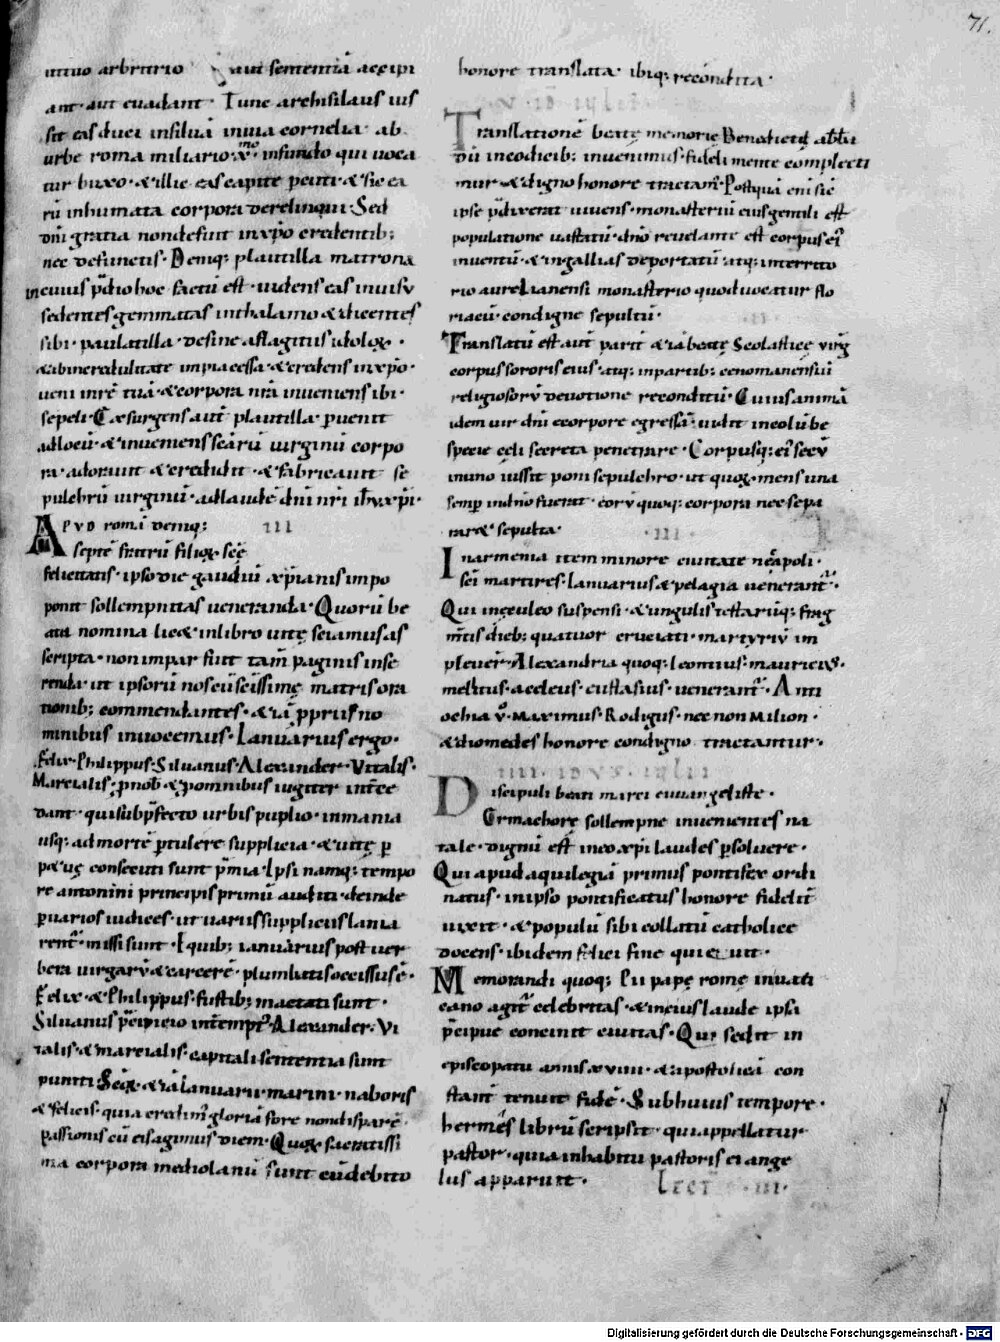 71.
uttuo arbitrio aut sententiā accipi
ant· aut euadant· Tunc archisilaus ius
sit eas duci insiluā inuia cornelia· ab
urbe roma miliario x̊· infundo qui uoca
tur buxo· & illic eas capite puniri· & sic ea
rū inhumata corpora derelinqui· Sed
dn̄i gratia nondesunt inxp̄o credentib;
nec defunctis· Deniq; plautilla matrona
incuius p̄dio hoc factū est· uidens eas inuisu
sedentes gemmatas inthalamo & dicentes
sibi· paulatilla· desine aflagitiis idolorꝝ·
& abincredulitate impia cessa· & credens inxp̄o·
ueni inrē tuā· & corpora nr̄a inueniens ibi·
sepeli· Exsurgens aut̄ plautilla puenit
adlocū· & inueniens scārū uirginū corpo
ra· adorauit & credidit· & fabricauit se
pulchrū uirginū· adlaudē dn̄i nr̄i ihū xp̄i·
APVD romā deniq; III
septē fratrū filiorꝝ scē
felicitatis· ipso die gaudiū xp̄ianis impo
ponit sollempnitas ueneranda· Quorū be
ata nomina lic& inlibro uitę sciamus as
scripta· non impar fuit tam̄ paginis inse
renda· ut ipsorū nos cū scīssimę matris ora
tionib; commendantes· & iā pprus no
minibus inuocemus· Ianuarius ergo·
Felix· Philippus· Siluanus· Alexander· Vitalis·
Marcialis· p nob & p omnibus iugiter int̄ce
dant· qui sub p̄fecto urbis puplio· inmania
usq; ad mortē ptulere supplicia· & uitę p
p&uę consecuti sunt p̄mia· Ipsi namq; tempo
re antonini principis primū auditi· deinde
p uarios iudices· ut uariis suppliciis lania
rent᷑· missi sunt· E quib; ianuarius post uer
bera uirgarū & carcerē· plumbatis occissus ē·
Felix· & Philippus· fustib; mactati sunt·
Siluanus p̄cipicio int̄empt᷑· Alexander· Vi
talis· & marcialis· capitali sententia sunt
puniti· Scorꝝ & iā Ianuarii· marini· naboris
& felicis· quia eralim᷑ gloriā fore nondisparē·
passionis cū eis agimus diem· Quorꝝ sacratissi
ma corpora mediolanū sunt cū debito
honore translata· ibiq; recondita·
Translationē beatę memorię Benedicti abb̄a
dū incodicib; inuenimus· fideli mente complecti
mur· & digno honore tractam᷑· Postquā eni sic
ipse p̄dixerat uiuens· monasteriū eius gentili est
populatione uastatū· dn̄o reuelante est corpus ei᷑
inuentū· & ingallias deportatū· atq; interrito
rio aurelianensi monasterio quod uocatur flo
riacū· condigne sepultū·
Translatū est aut̄ parit̄ & iā beatę Scolasticę uirḡ
corpus sororis eius· atq; inpartib; cenomanensiū
religiosorū deuotione reconditū· Cuius animā
idem uir dn̄i e corpore egressā· uidit incolūbe
specie celi secreta penetrare· Corpusq; ei᷑ secū
in uno iussit poni sepulchro· ut quorꝝ mens una
semp̄ indn̄o fuerat· corū quoq; corpora nec sepa
rar& sepulta· III·
In armenia item minore ciuitate neapoli·
scī martires· Ianuarius & pelagia uenerant᷑·
Qui ineculeo suspensi· & ungulis testarūq; frag
mtis dieb; quatuor cruciati· martyriū im
pleuer̄· Alexandria quoq; leontius· mauricius·
mellitus· aecleus· eustasius· uenerant᷑· Anti
ochia ů· Maximus· Rodigus· nec non Milion·
& diomedes honore condigno tractantur·
IIII· IDVS· IVLII
Discipuli beati marci euuangelistę·
Ermachorę sollempne inuenientes na
tale· dignū est inco xp̄i laudes psoluere·
Qui apud aquilegiā primus pontifex ordi
natus· in ipso pontificatus honore fideliť
uixit· & populū sibi collatū catholice
docens· ibidem felici fine quieuit·
Memorandi quoq; Pii papę romę in uati
cano agit᷑ celebritas· & in eius laude ipsa
p̄cipue concinit ciuitas· Qui sedit in
episcopatu annis xviiii· & apostolicā con
stant̄ tenuit fidē· Sub huius tempore·
hermes librū scripsit· qui appellatur
pastor· quia inhabitu pastoris ei ange
lus apparuit· lect̄ III·
Digitalisierung gefördert durch die Deutsche Forschungsgemeinschaft - DFG